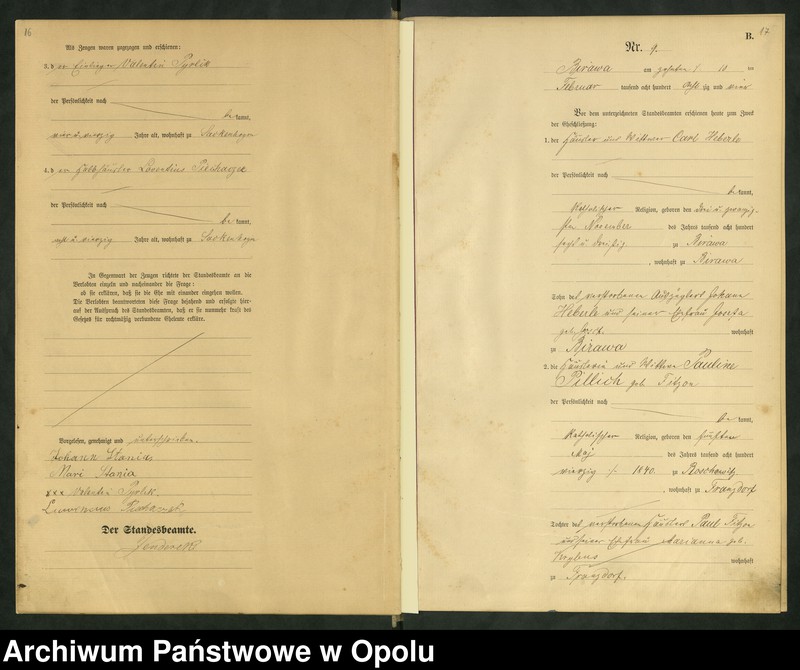 16
Als Zeugen waren zugezogen und erschienen:
3. der Einlieger Valentin Pyrlik
der Persönlichkeit nach
be kannt,
vier u. vierzig Jahre alt, wohnhaft zu Sackenhoym
4. der Halbhäusler
der Persönlichkeit nach
be kannt,
acht u. vierzig Jahre alt, wohnhaft zu Sackenhoym
In Gegenwart der Zeugen richtete der Standesbeamte an die
Verlobten einzeln und nacheinander die Frage:
ob sie erklären, daß sie die Ehe mit einander eingehen wollen.
Die Verlobten beantworteten diese Frage bejahend und erfolgte hier-
auf der Ausspruch des Standesbeamten, daß er sie nunmehr kraft des
Gesetzes für rechtmäßig verbundene Eheleute erkläre.
Vorgelesen, genehmigt und unterschrieben.
Johann Stania
Mari Stania
xxx Valentin Pyrlik.
Der Standesbeamte.
17
B.
Nr. 9.
Birawa am zehnten 10 ten
Februar tausend acht hundert acht zig und vier
Vor dem unterzeichneten Standesbeamten erschienen heute zum Zweck
der Eheschließung:
1. der Häusler und Wittwer Carl Heberle
der Persönlichkeit nach
be kannt,
Katholischer Religion, geboren den drei u. zwanzig-
sten November des Jahres tausend acht hundert
sechs u. dreißig zu Birawa
, wohnhaft zu Birawa
Sohn des verstorbenen Auszüglers Johann
Heberle und seiner Ehefrau Josefa
geb. wohnhaft
zu Birawa
2. die Häuslerin und Wittwe Pauline
Pillich geb. Titzon
der Persönlichkeit nach
be kannt,
Katholischer Religion, geboren den fünften
Maj des Jahres tausend acht hundert
vierzig 1840. zu Koschowitz
, wohnhaft zu Franzdorf
Tochter des verstorbenen Häuslers Paul Titzon
und seiner Ehefrau Marianna geb.
wohnhaft
zu Franzdorf.
Archiwum Państwowe w Opolu